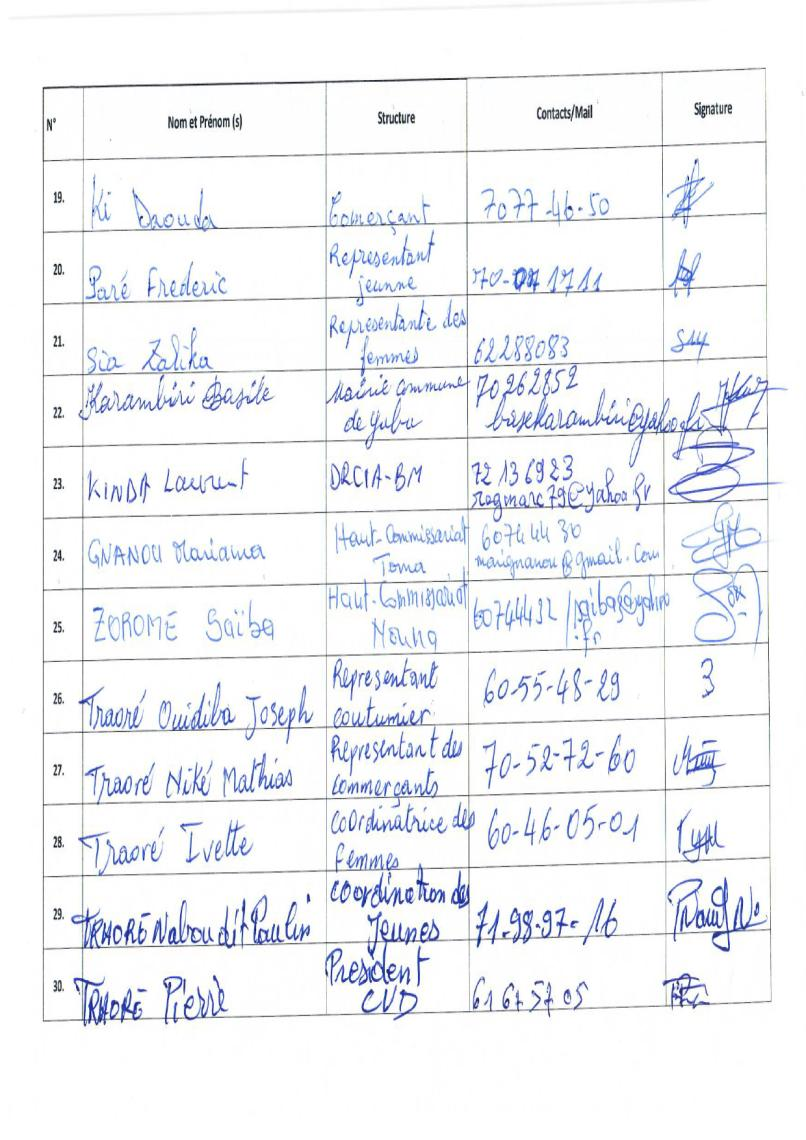 N° Nom et Prénom (s) Structure Contacts/Mail Signature
19. Ki Daouda Comerçant 7077-46-50
20. Paré Frederic Representant jeunne 70-07 1711
21. Sia Zalika Representante des femmes 62288083
22. Karambiri Basile Mairie commune de Yaba 70262852 basekarambiri@yahoo.fr
23. KINDA Laurent DRCIA-BM 72 136923 ragmarc79@yahoo.fr
24. GNANOU Mariama Haut-Commissariat Toma 60744430 marignanou@gmail.com
25. ZOROME Saïba Haut-Commissariat Nouna 60744432 /
26. Traoré Ouidiba Joseph Representant coutumier 60-55-48-29 3
27. Traoré Niké Mathias Representant des commerçants 70-52-72-60
28. Traoré Ivette coordinatrice des femmes 60-46-05-01
29. TRAORE Nabou dit Paulin coordination des Jeunes 71-98-97-16
30. TRAORE Pierre President CVD 61675705